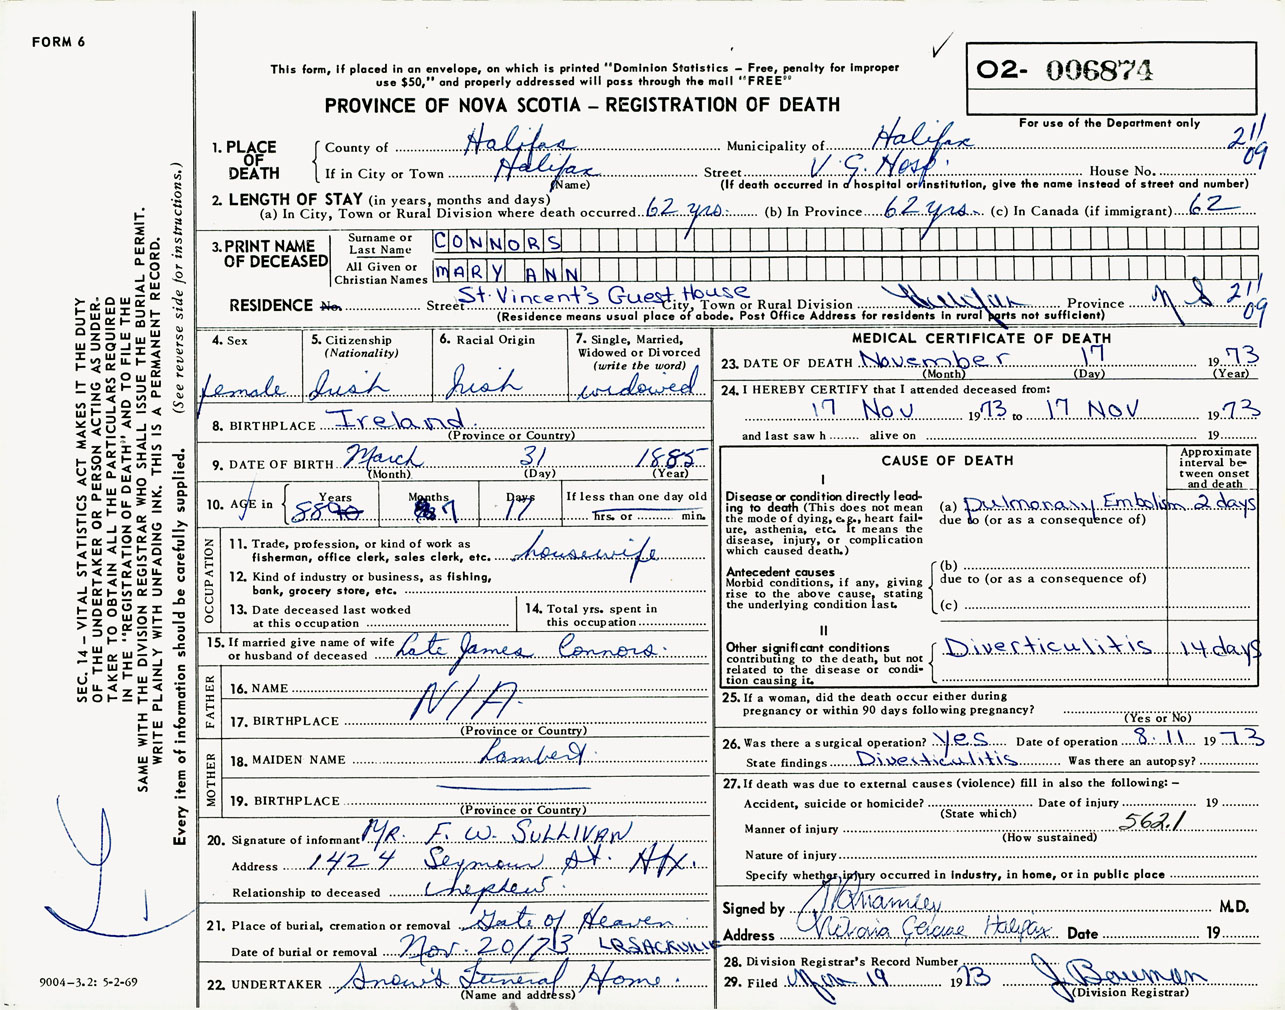 FORM 6
This form, if placed in an envelope, on which is printed "Dominion Statistics – Free, penalty for improper
use $50," and properly addressed will pass through the mail "FREE"
PROVINCE OF NOVA SCOTIA – REGISTRATION OF DEATH
02- 006874
For use of the Department only
SEC. 14 – VITAL STATISTICS ACT MAKES IT THE DUTY
OF THE UNDERTAKER OR PERSON ACTING AS UNDER-
TAKER TO OBTAIN ALL THE PARTICULARS REQUIRED
IN THE "REGISTRATION OF DEATH" AND TO FILE THE
SAME WITH THE DIVISION REGISTRAR WHO SHALL ISSUE THE BURIAL PERMIT.
WRITE PLAINLY WITH UNFADING INK. THIS IS A PERMANENT RECORD.
Every item of information should be carefully supplied. (See reverse side for instructions.)
1. PLACE OF DEATH
County of Halifax Municipality of Halifax 211
If in City or Town Halifax Street V. G. Hosp. House No. 09
(Name) (If death occurred in a hospital or institution, give the name instead of street and number)
2. LENGTH OF STAY (in years, months and days)
(a) In City, Town or Rural Division where death occurred 62 yrs. (b) In Province 62 yrs. (c) In Canada (if immigrant) 62
3. PRINT NAME OF DECEASED
Surname or Last Name CONNORS
All Given or Christian Names MARY ANN
RESIDENCE No. Street St. Vincent's Guest House City, Town or Rural Division Halifax Province N S 211 09
(Residence means usual place of abode. Post Office Address for residents in rural parts not sufficient)
4. Sex
female
5. Citizenship
(Nationality)
Irish
6. Racial Origin
Irish
7. Single, Married,
Widowed or Divorced
(write the word)
widowed
8. BIRTHPLACE Ireland
(Province or Country)
9. DATE OF BIRTH March 31 1885
(Month) (Day) (Year)
10. AGE in Years Months Days If less than one day old
88 7 17 hrs. or min.
OCCUPATION
11. Trade, profession, or kind of work as
fisherman, office clerk, sales clerk, etc. housewife
12. Kind of industry or business, as fishing,
bank, grocery store, etc.
13. Date deceased last worked
at this occupation
14. Total yrs. spent in
this occupation
15. If married give name of wife
or husband of deceased Late James Connors
FATHER
16. NAME N/A
17. BIRTHPLACE
(Province or Country)
MOTHER
18. MAIDEN NAME Lambert
19. BIRTHPLACE
(Province or Country)
20. Signature of informant MR. F. W. SULLIVAN
Address 1424 Seymour St. Hfx.
Relationship to deceased nephew
21. Place of burial, cremation or removal Gate of Heaven
Date of burial or removal Nov. 20/73 LR SACKVILLE
22. UNDERTAKER Snow's Funeral Home.
(Name and address)
9004-3.2: 5-2-69
MEDICAL CERTIFICATE OF DEATH
23. DATE OF DEATH November 17 1973
(Month) (Day) (Year)
24. I HEREBY CERTIFY that I attended deceased from:
17 Nov 1973 to 17 NOV 1973
and last saw h alive on 19
CAUSE OF DEATH
Approximate
interval be-
tween onset
and death
I
Disease or condition directly lead-
ing to death (This does not
mean the mode of dying, e.g., heart fail-
ure, asthenia, etc. It means the
disease, injury, or complication
which caused death.)
(a) Pulmonary Embolism 2 days
due to (or as a consequence of)
Antecedent causes
Morbid conditions, if any, giving
rise to the above cause, stating
the underlying condition last.
(b)
due to (or as a consequence of)
(c)
II
Other significant conditions
contributing to the death, but not
related to the disease or condi-
tion causing it.
Diverticulitis 14 days
25. If a woman, did the death occur either during
pregnancy or within 90 days following pregnancy?
(Yes or No)
26. Was there a surgical operation? Yes Date of operation 8.11 1973
State findings Diverticulitis Was there an autopsy?
27. If death was due to external causes (violence) fill in also the following: –
Accident, suicide or homicide? Date of injury 19
(State which)
Manner of injury 562.1
(How sustained)
Nature of injury
Specify whether injury occurred in industry, in home, or in public place
Signed by M.D.
Address Victoria General Halifax Date 19
28. Division Registrar's Record Number
29. Filed Nov 19 1973 J. Bauman
(Division Registrar)